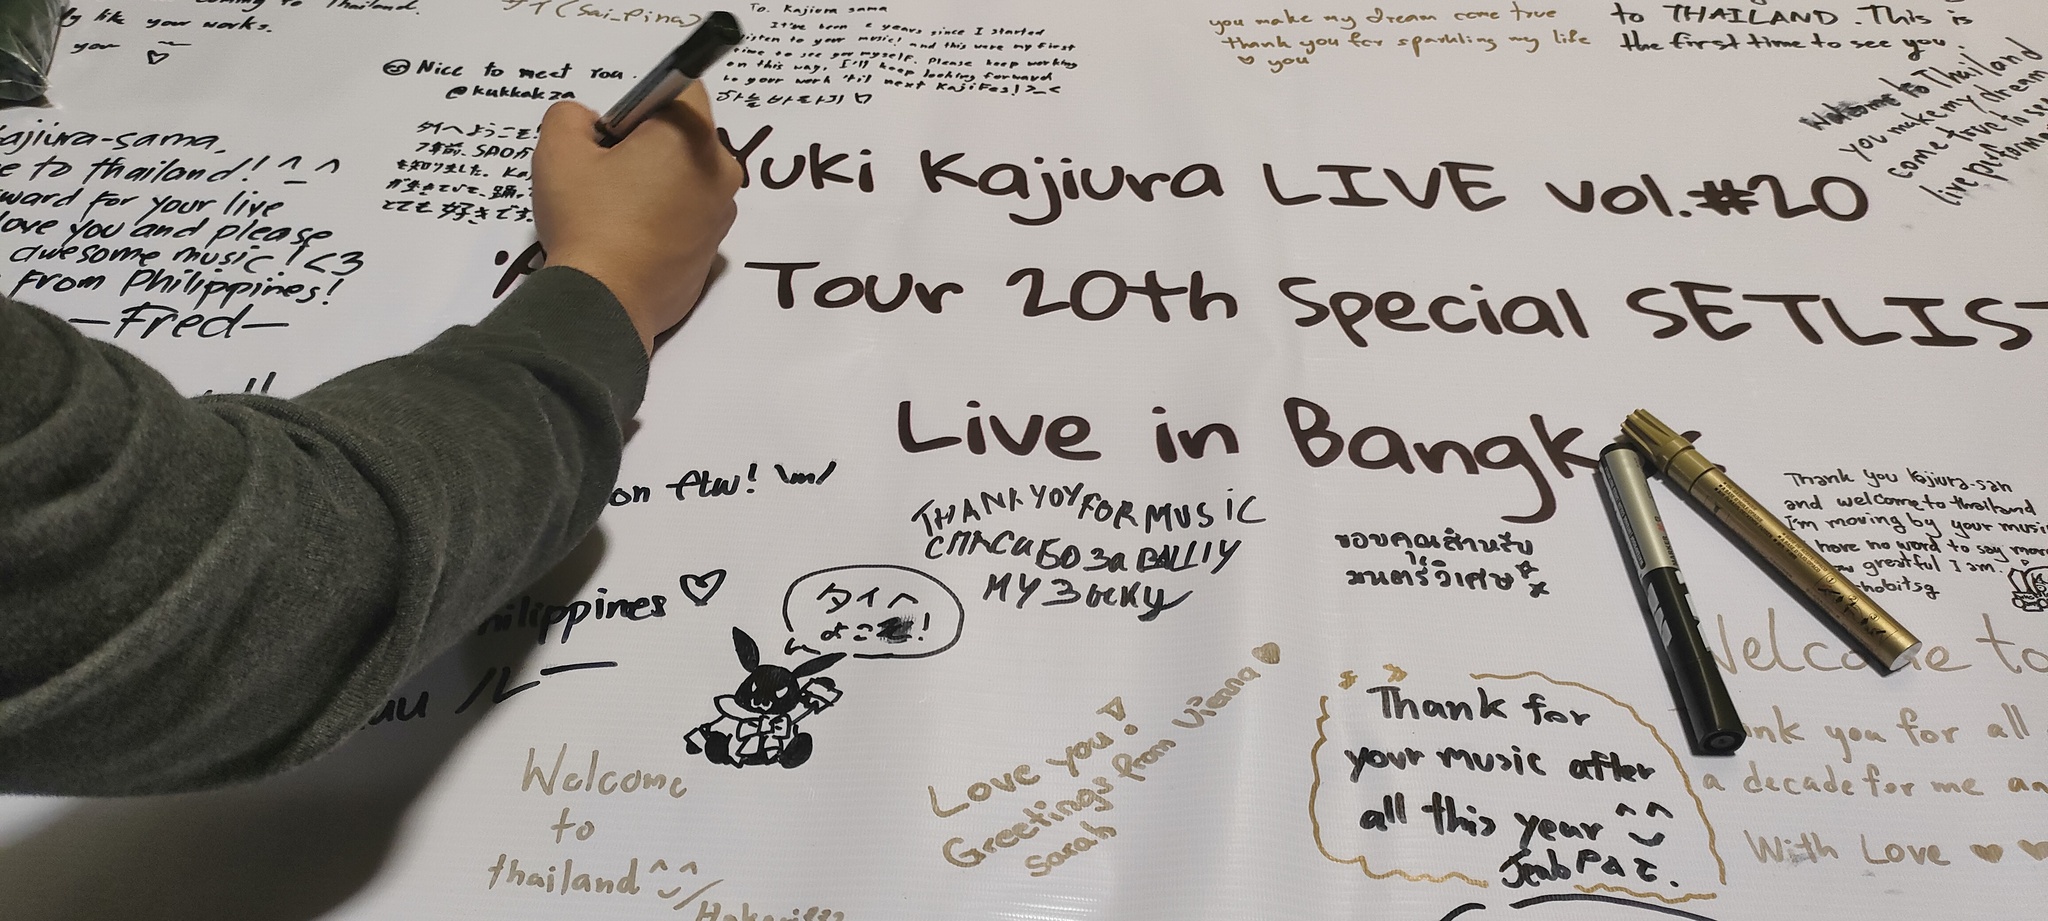 coming to Thailand.
ly like your works.
you
サイ (sai_pina)
Nice to meet you.
@kukkakza
To. Kajiura sama
It've been 2 years since I started
listen to your music! and this were my first
time to see you myself. Please keep working
on this way. I'll keep looking forward
to your work 'til next KajiFes! >_<
하늘바라기
you make my dream come true
thank you for sparkling my life
you
to THAILAND. This is
the first time to see you.
Welcome to Thailand
you make my dream
come true to see
live performan
ajiura-sama,
e to thailand! ^_^
ward for your live
love you and please
awesome music! <3
From Philippines!
—Fred—
タイへようこそ!
7年前、SAOか
を知りました。Ka
が生きていて、踊
とても好きです。
Yuki Kajiura LIVE vol.#20
Tour 20th Special SETLIST
Live in Bangk
on ftw! \m/
hilippines
THANK YOY FOR MUSIC
СПАСИБО ЗА ВАШУ
МУЗЫКУ
ขอบคุณสำหรับ
มนตร์วิเศษ
Thank you Kajiura-san
and welcome to thailand
I'm moving by your music
have no word to say more
greatful I am.
hobitsg
タイへ
よこそ!
Welcome
to
thailand ^^
Love you!
Greetings from Vienna
Sarah
Thank for
your music after
all this year ^^
Welcome to
nk you for all
a decade for me an
With Love